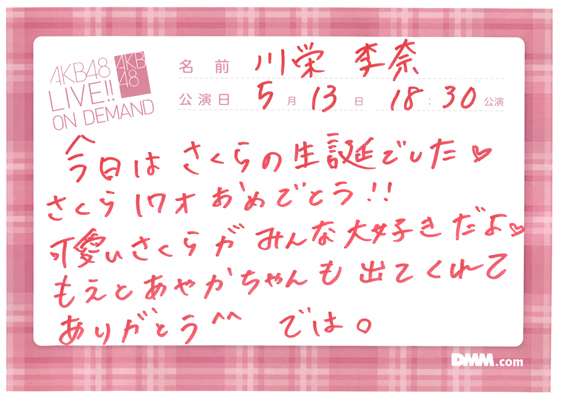 AKB48
LIVE!!
ON DEMAND
AKB
48
名前 川栄 李奈
公演日 5月13日 18:30公演
今日は さくらの生誕でした♡
さくら 17才 おめでとう!!
可愛いさくらが みんな大好きだよ♡
もえとあやかちゃんも 出てくれて
ありがとう^^ では。
DMM.com